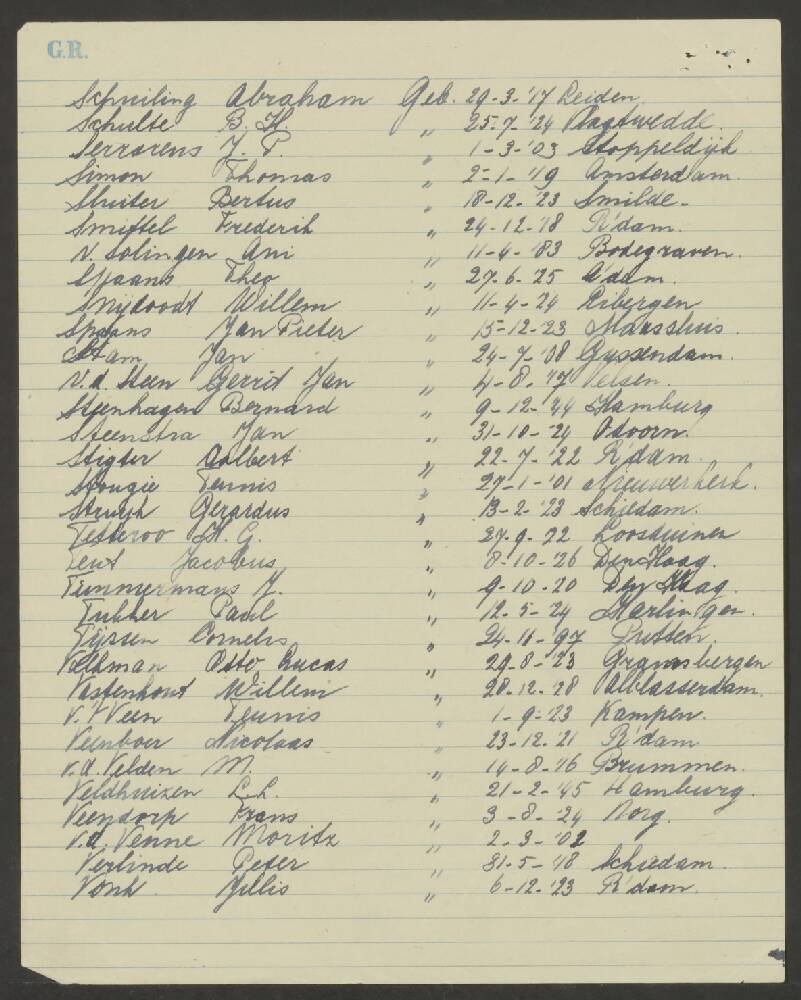 G.R.
Schuiling Abraham Geb. 29-3-'17 Leiden
Schulte B. H. " 25-7-'24 Vlagtwedde
Serrarens J. P. " 1-3-'03 Stoppeldijk
Simon Thomas " 2-1-'19 Amsterdam.
Sluiter Bertus " 18-12-'23 Smilde-
Smittel Frederik " 24-12-'18 R'dam.
v. Solingen Ani " 11-4-'83 Bodegraven.
Spaans Theo " 27-6-'25 A'dam.
Snijdoodt Willem " 11-4-'24 Eibergen
Spaans Jan Pieter " 15-12-'23 Maassluis.
Stam Jan " 24-7-'08 Gyssendam.
v.d. Steen Gerrit Jan " 4-8-'17 Velsen.
Steenhagen Bernard " 9-12-'44 Hamburg
Steenstra Jan " 31-10-'24 Odoorn.
Stigter Adbert " 22-7-'22 R'dam.
Stougie Teunis " 27-1-'01 Nieuwerkerk.
Struyk Gerardus " 13-2-'23 Schiedam.
Tetteroo H. G. " 27-9-'22 Loosduinen
Teut Jacobus " 8-10-'26 Den Haag.
Timmermans J. " 9-10-20 Den Haag.
Tukker Paul " 12-5-'24 Harlingen.
Tijssen Cornelis " 24-11-'97 Putten.
Veldman Otto Lucas " 29-8-'23 Gramsbergen
Vastenhout Willem " 28-12-'28 Alblasserdam.
v. 't Veen Teunis " 1-9-'23 Kampen.
Veenboer Nicolaas " 23-12-'21 R'dam
v.d. Velden M. " 14-8-'16 Brummen.
Veldhuizen L.L. " 21-2-'45 Hamburg.
Veendorp Frans " 3-8-'24 Norg.
v.d. Venne Moritz " 2-3-'02
Verlinde Peter " 31-5-'18 Schiedam.
Vonk Jillis " 6-12-'23 R'dam.